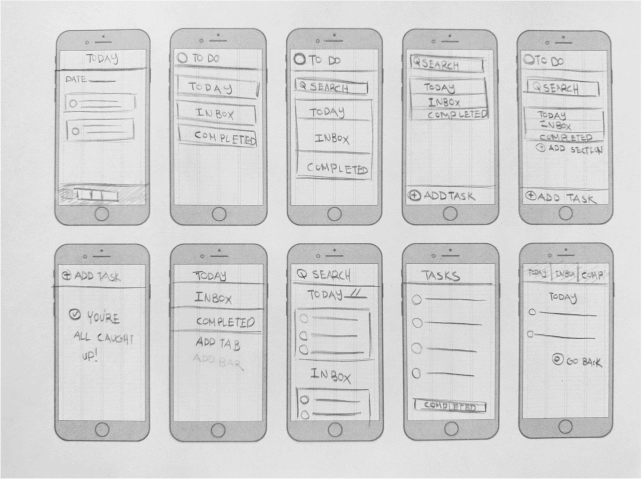 TODAY
DATE
TO DO
TODAY
INBOX
COMPLETED
TO DO
SEARCH
TODAY
INBOX
COMPLETED
SEARCH
TODAY
INBOX
COMPLETED
ADD TASK
TO DO
SEARCH
TODAY
INBOX
COMPLETED
ADD SECTION
ADD TASK
ADD TASK
YOU'RE
ALL CAUGHT
UP!
TODAY
INBOX
COMPLETED
ADD TAB
ADD BAR
SEARCH
TODAY
INBOX
TASKS
COMPLETED
TODAY INBOX COMP
TODAY
GO BACK